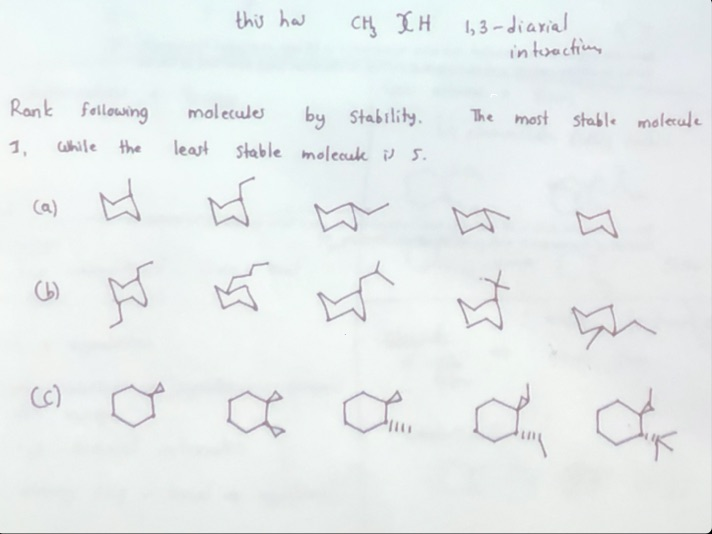 this has CH3 H 1,3-diaxial
interaction
Rank following molecules by stability. The most stable molecule
1, while the least stable molecule is 5.
(a)
(b)
(c)